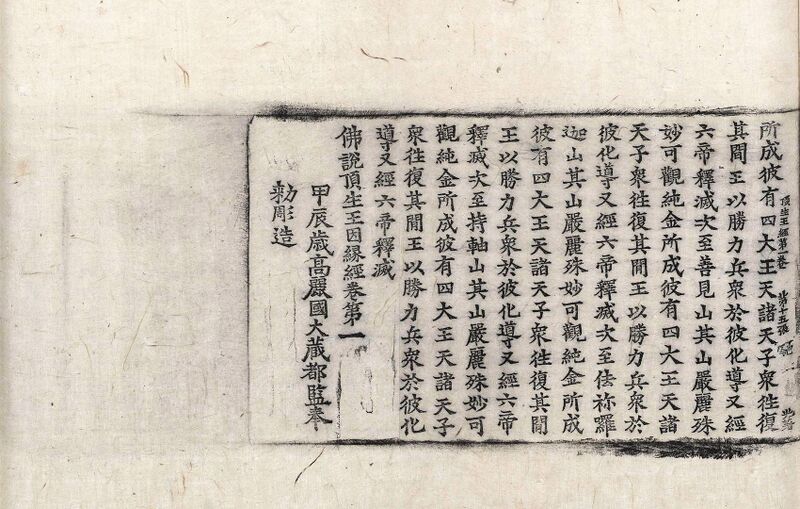 所成彼有四大王天諸天子衆往復
頂生王經第一卷 第十五張
其間王以勝力兵衆於彼化導又經
六帝釋滅次至善見山其山嚴麗殊
妙可觀純金所成彼有四大王天諸
天子衆往復其間王以勝力兵衆於
彼化導又經六帝釋滅次至佉祢羅
迦山其山嚴麗殊妙可觀純金所成
彼有四大王天諸天子衆往復其間
王以勝力兵衆於彼化導又經六帝
釋滅次至持軸山其山嚴麗殊妙可
觀純金所成彼有四大王天諸天子
衆往復其間王以勝力兵衆於彼化
導又經六帝釋滅
佛說頂生王因緣經卷第一
甲辰歲高麗國大藏都監奉
勑彫造